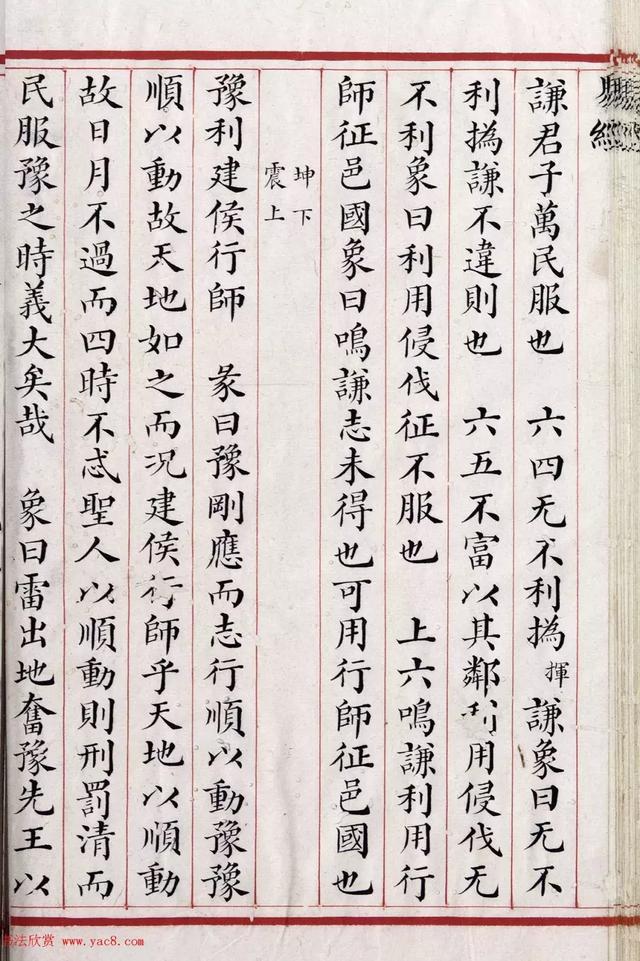 易經
謙君子萬民服也　六四无不利撝揮謙象曰无不
利撝謙不違則也　六五不富以其鄰利用侵伐无
不利象曰利用侵伐征不服也　上六鳴謙利用行
師征邑國象曰鳴謙志未得也可用行師征邑國也
坤下
震上
豫利建侯行師　彖曰豫剛應而志行順以動豫豫
順以動故天地如之而況建侯行師乎天地以順動
故日月不過而四時不忒聖人以順動則刑罰清而
民服豫之時義大矣哉　象曰雷出地奮豫先王以
法欣赏 www.yac8.com